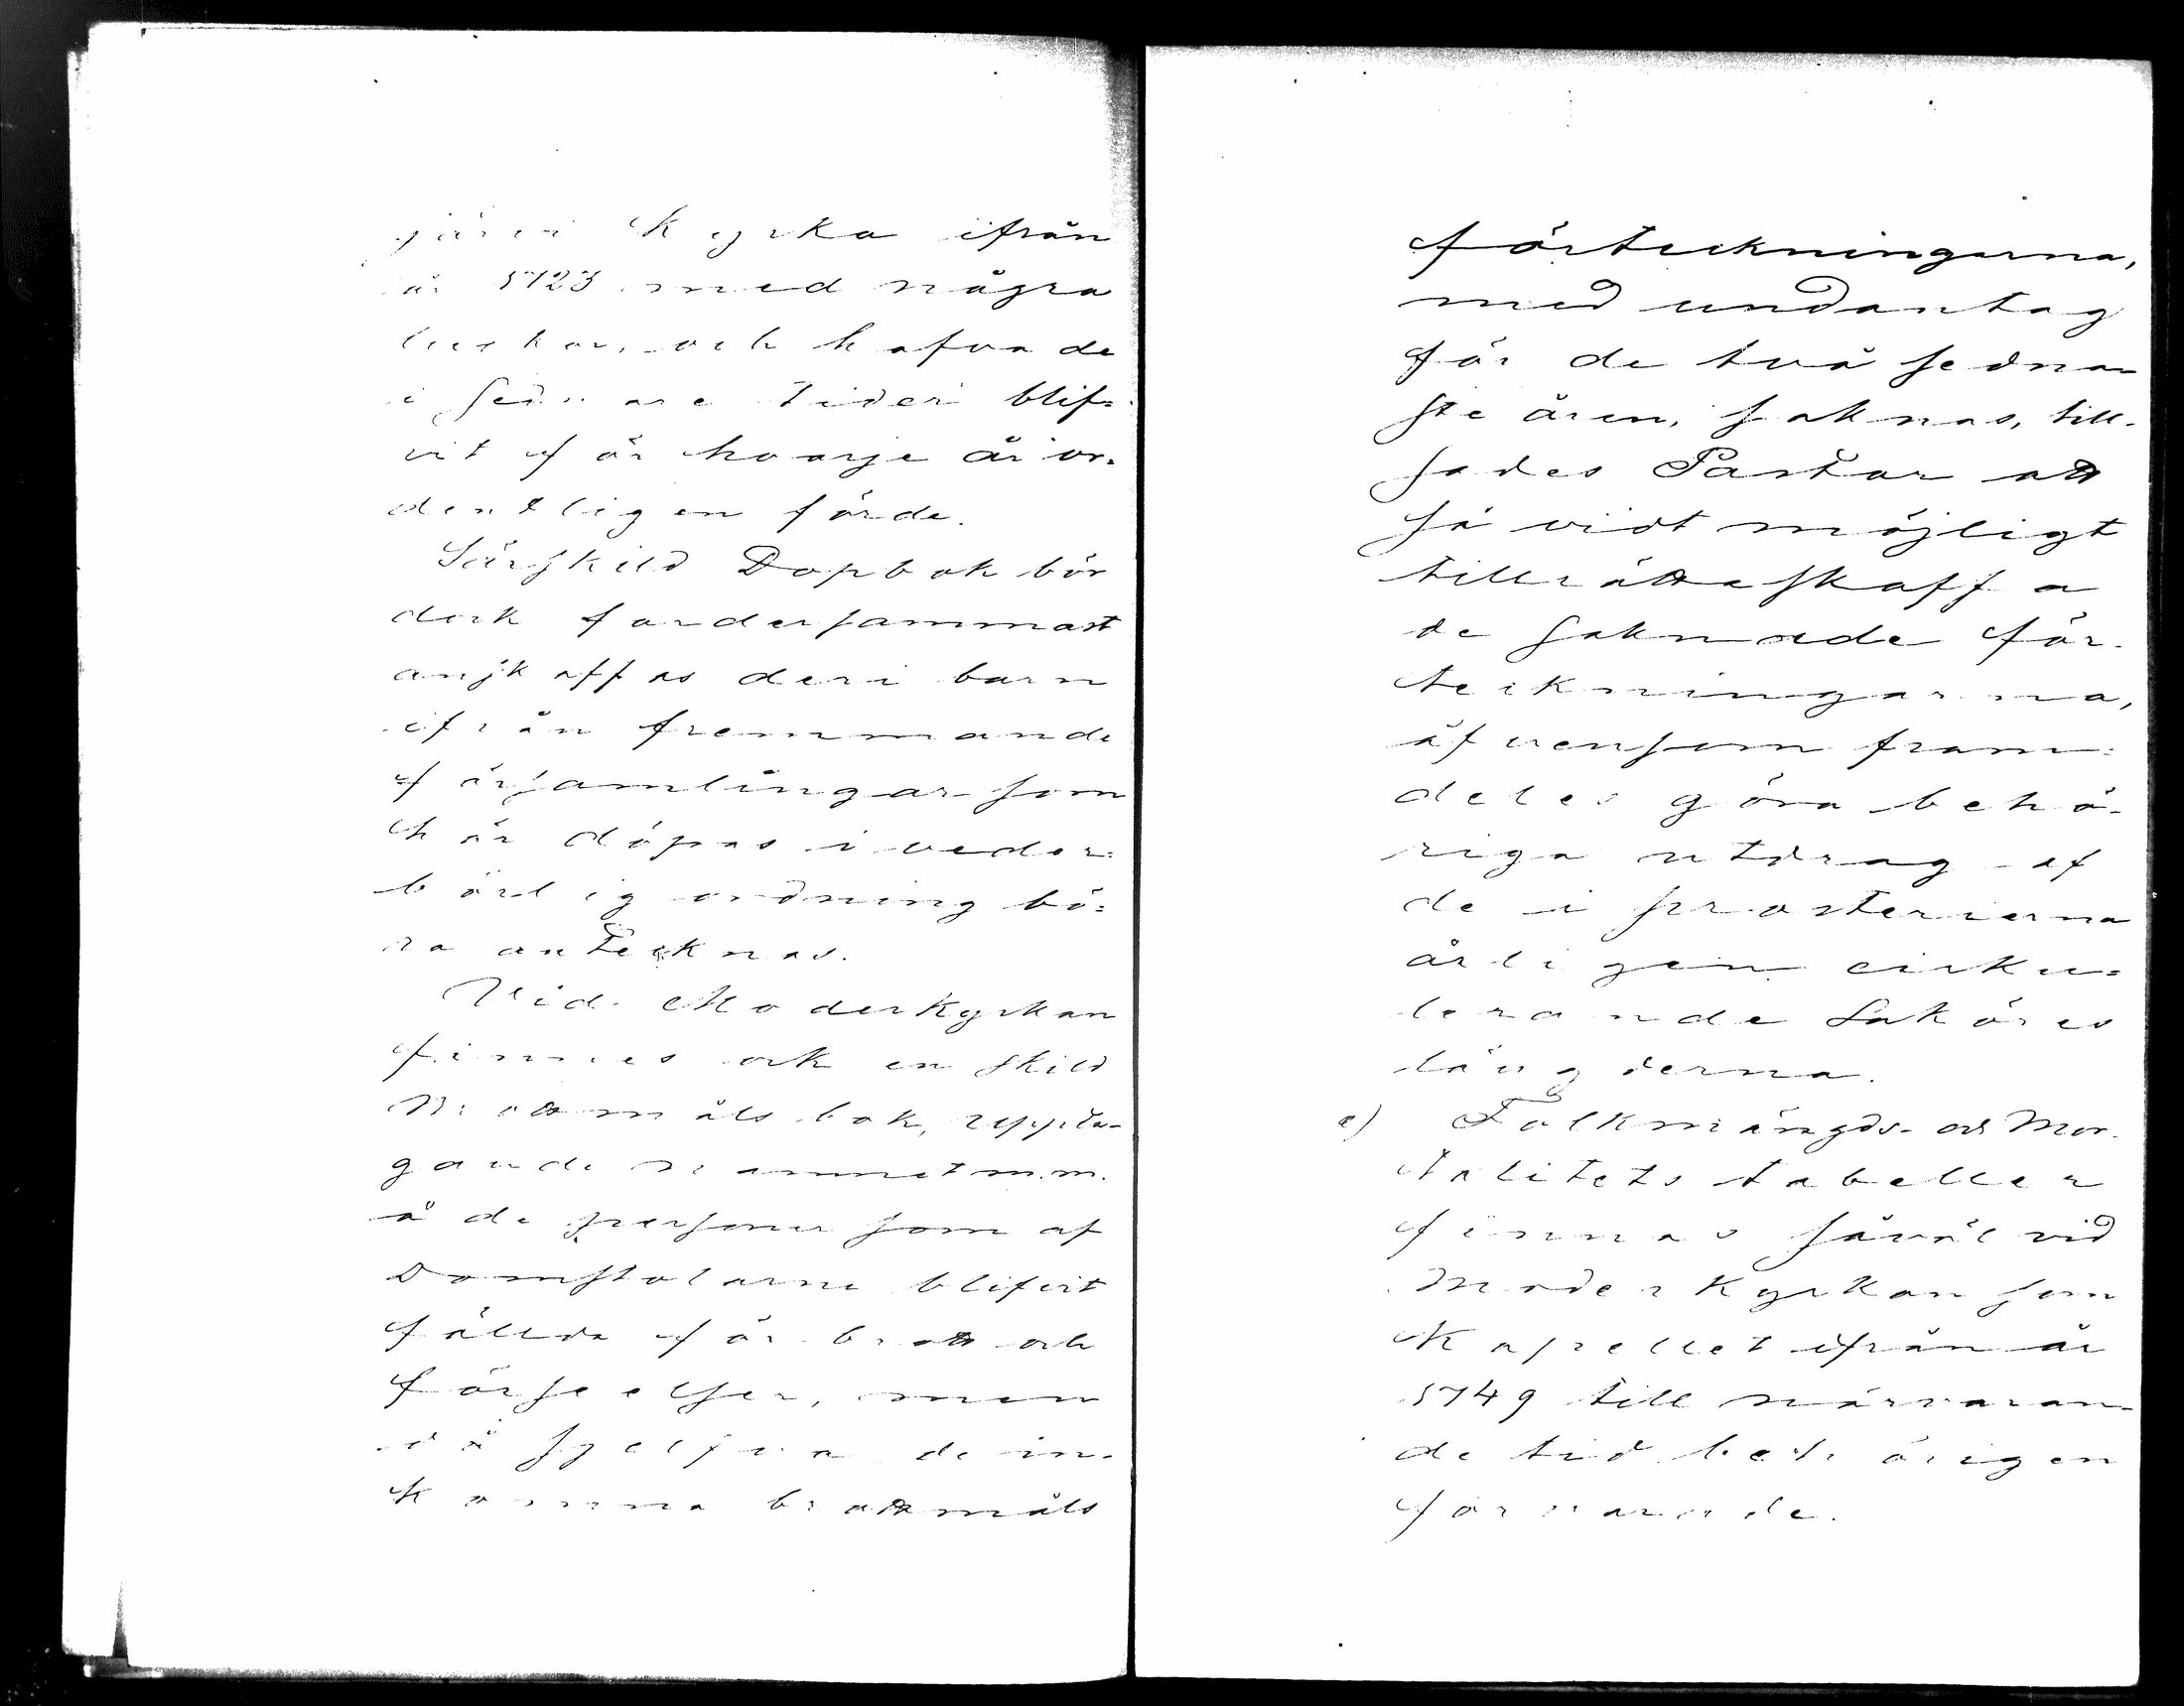 järvi Kyrka ifrån
år 1723 med några
luckor, och hafva de
i sednare tider blif=
vit för hvarje år or=
dentligen förde.
Särskild Dopbok bör
dock fordersammast
anskaffas deri barn
ifrån fremmande
församlingar som
här döpas i veder=
börlig ordning bö=
ra antecknas.
Vid Moderkyrkan
finnes ock en skild
Brottmåls bok, uppta-
gande namnet m.m.
å de personer som af
Domstolarne blifvit
fällda för brott och
förseelser, men
då sjelfva de in-
komna brottmåls
förteckningarna,
med undantag
för de två sedna=
ste åren, saknas, till-
sades Pastor att
så vidt möjligt
tillrättaskaffa
de saknade för-
teckningarna,
äfvensom fram=
deles göra behö-
riga utdrag af
de i prosterierna
årligen cirku=
lerande Saköres
längderna.
e) Folkmängds- och Mor-
talitets tabeller
finnas såväl vid
Moderkyrkan som
Kapellet ifrån år
1749 till närvaran-
de tid behörigen
förvarade.